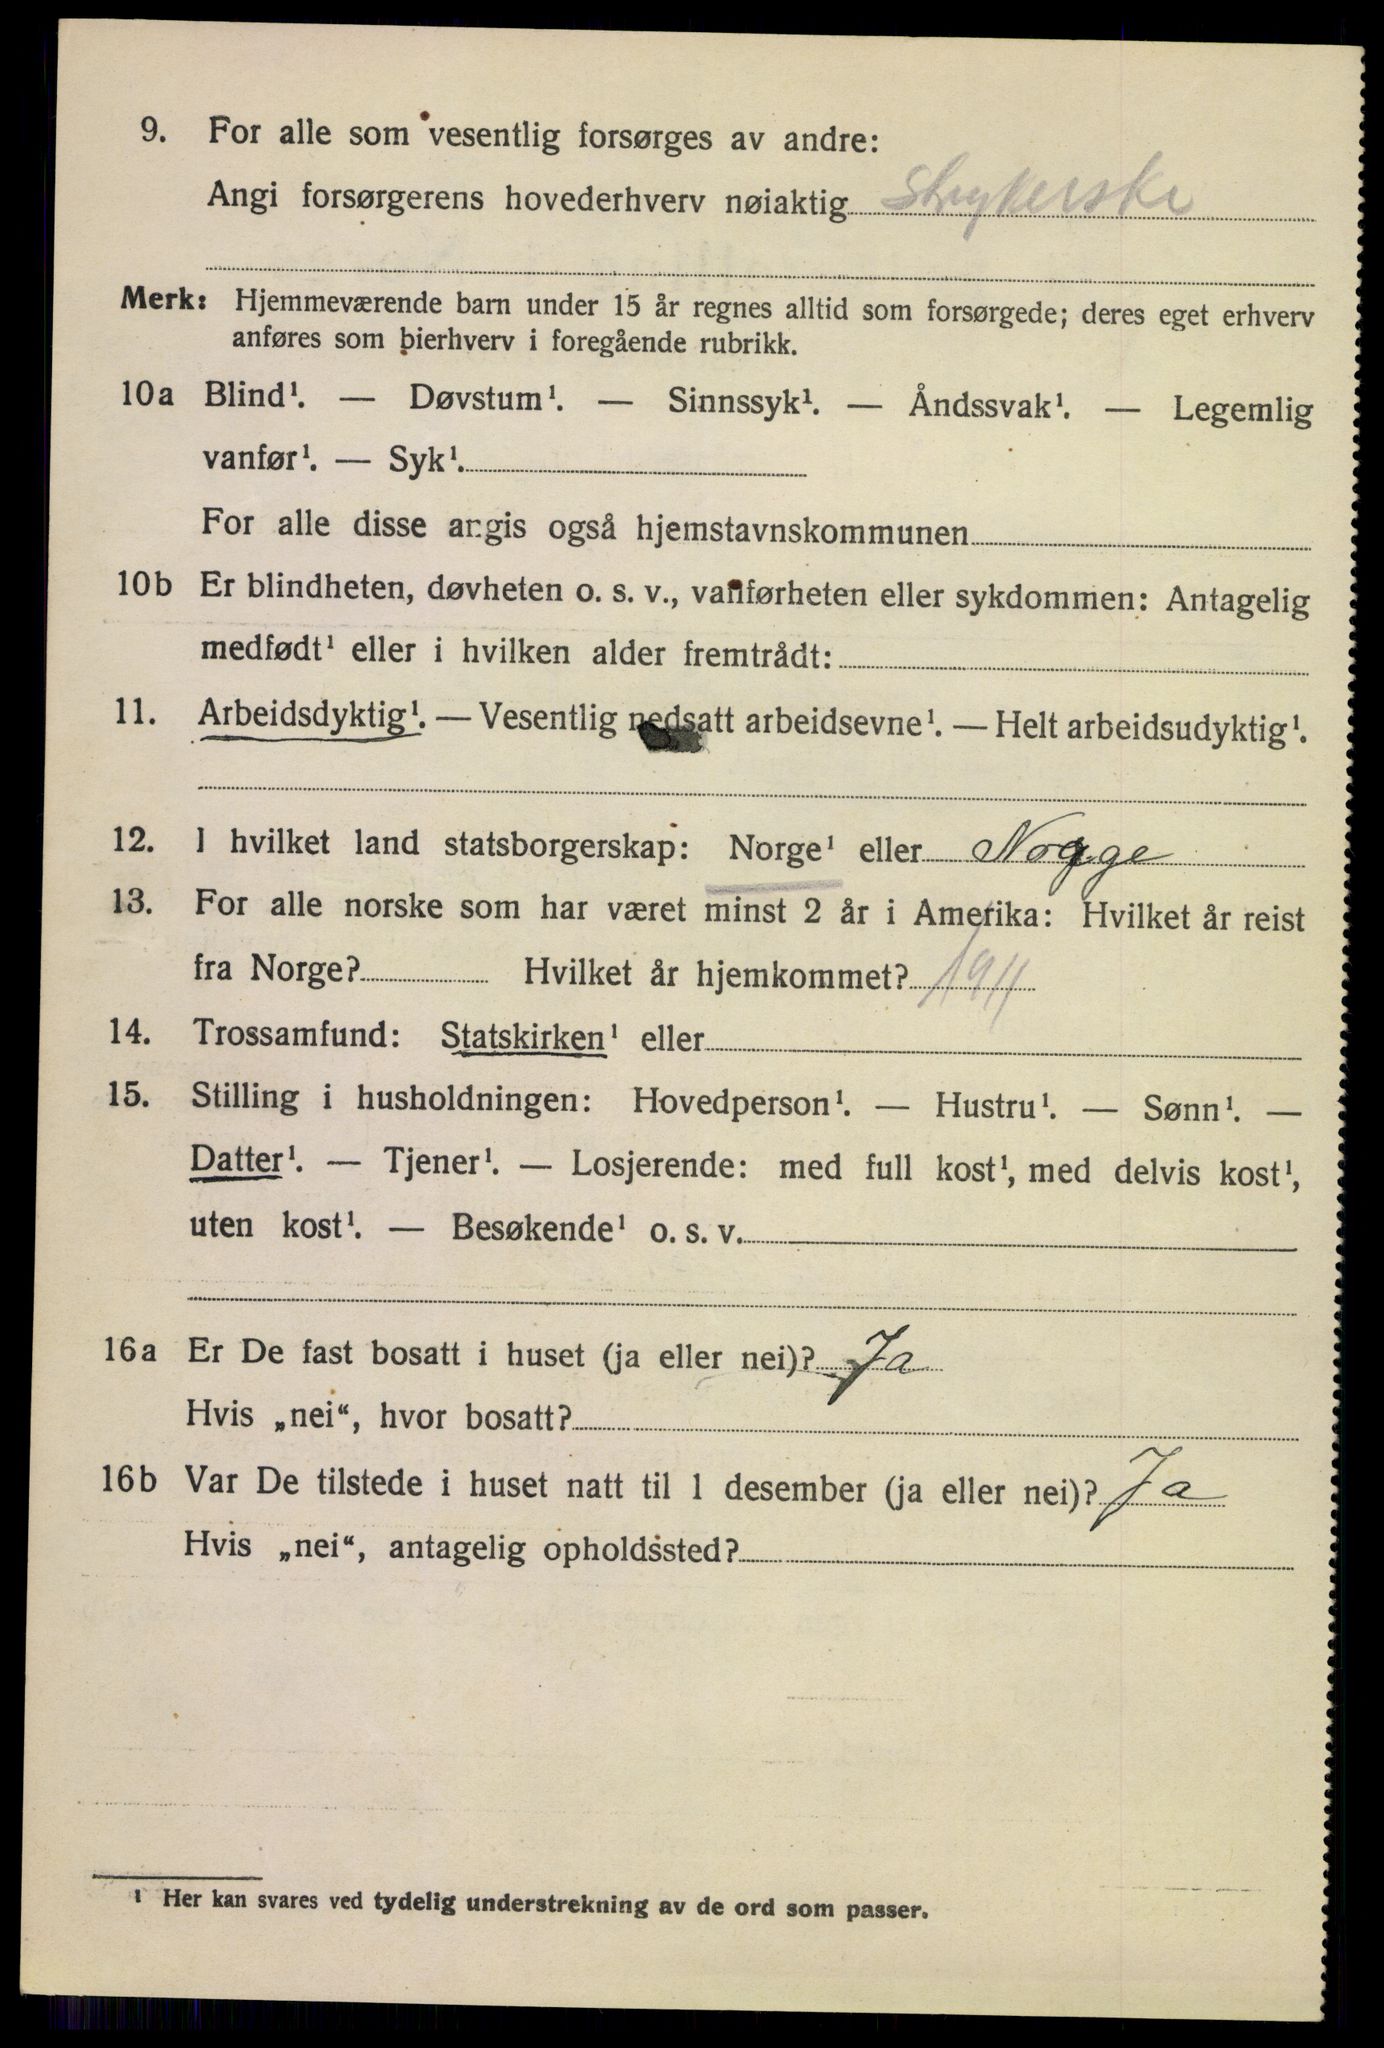 9. For alle som vesentlig forsørges av andre:
Angi forsørgerens hovederhverv nøiaktig Strykerske
Merk: Hjemmeværende barn under 15 år regnes alltid som forsørgede; deres eget erhverv
anføres som bierhverv i foregående rubrikk.
10a Blind¹. — Døvstum¹. — Sinnssyk¹. — Åndssvak¹. — Legemlig
vanfør¹. — Syk¹.
For alle disse angis også hjemstavnskommunen
10b Er blindheten, døvheten o. s. v., vanførheten eller sykdommen: Antagelig
medfødt¹ eller i hvilken alder fremtrådt:
11. Arbeidsdyktig¹. — Vesentlig nedsatt arbeidsevne¹. — Helt arbeidsudyktig¹.
12. I hvilket land statsborgerskap: Norge¹ eller Norge
13. For alle norske som har været minst 2 år i Amerika: Hvilket år reist
fra Norge? Hvilket år hjemkommet? 1911
14. Trossamfund: Statskirken¹ eller
15. Stilling i husholdningen: Hovedperson¹. — Hustru¹. — Sønn¹. —
Datter¹. — Tjener¹. — Losjerende: med full kost¹, med delvis kost¹,
uten kost¹. — Besøkende¹ o. s. v.
16a Er De fast bosatt i huset (ja eller nei)? Ja
Hvis „nei“, hvor bosatt?
16b Var De tilstede i huset natt til 1 desember (ja eller nei)? Ja
Hvis „nei“, antagelig opholdssted?
¹ Her kan svares ved tydelig understrekning av de ord som passer.